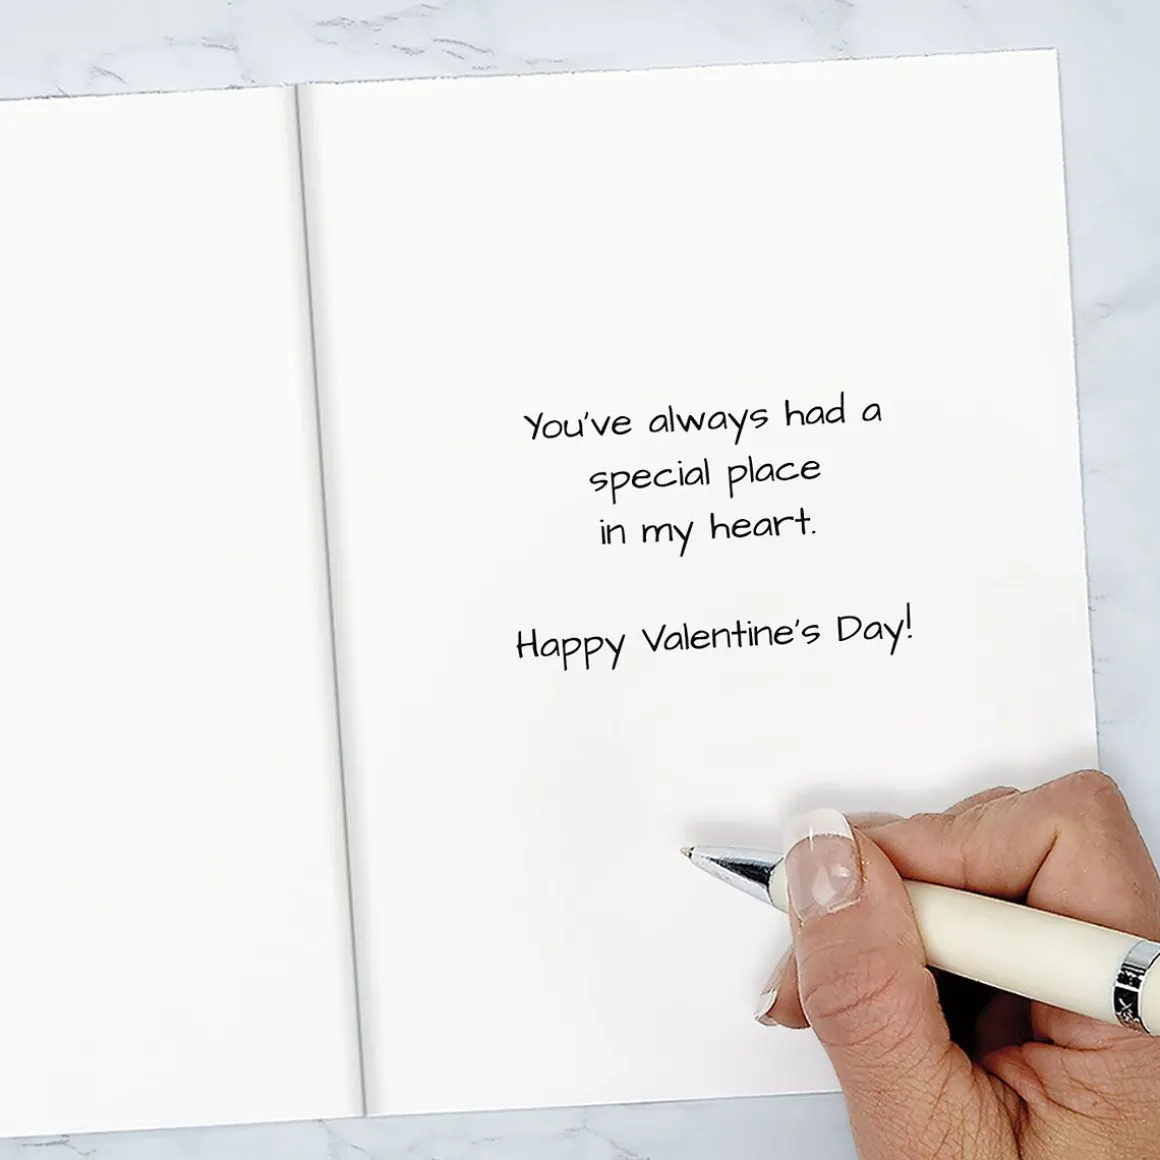 You've always had a
special place
in my heart.
Happy Valentine's Day!